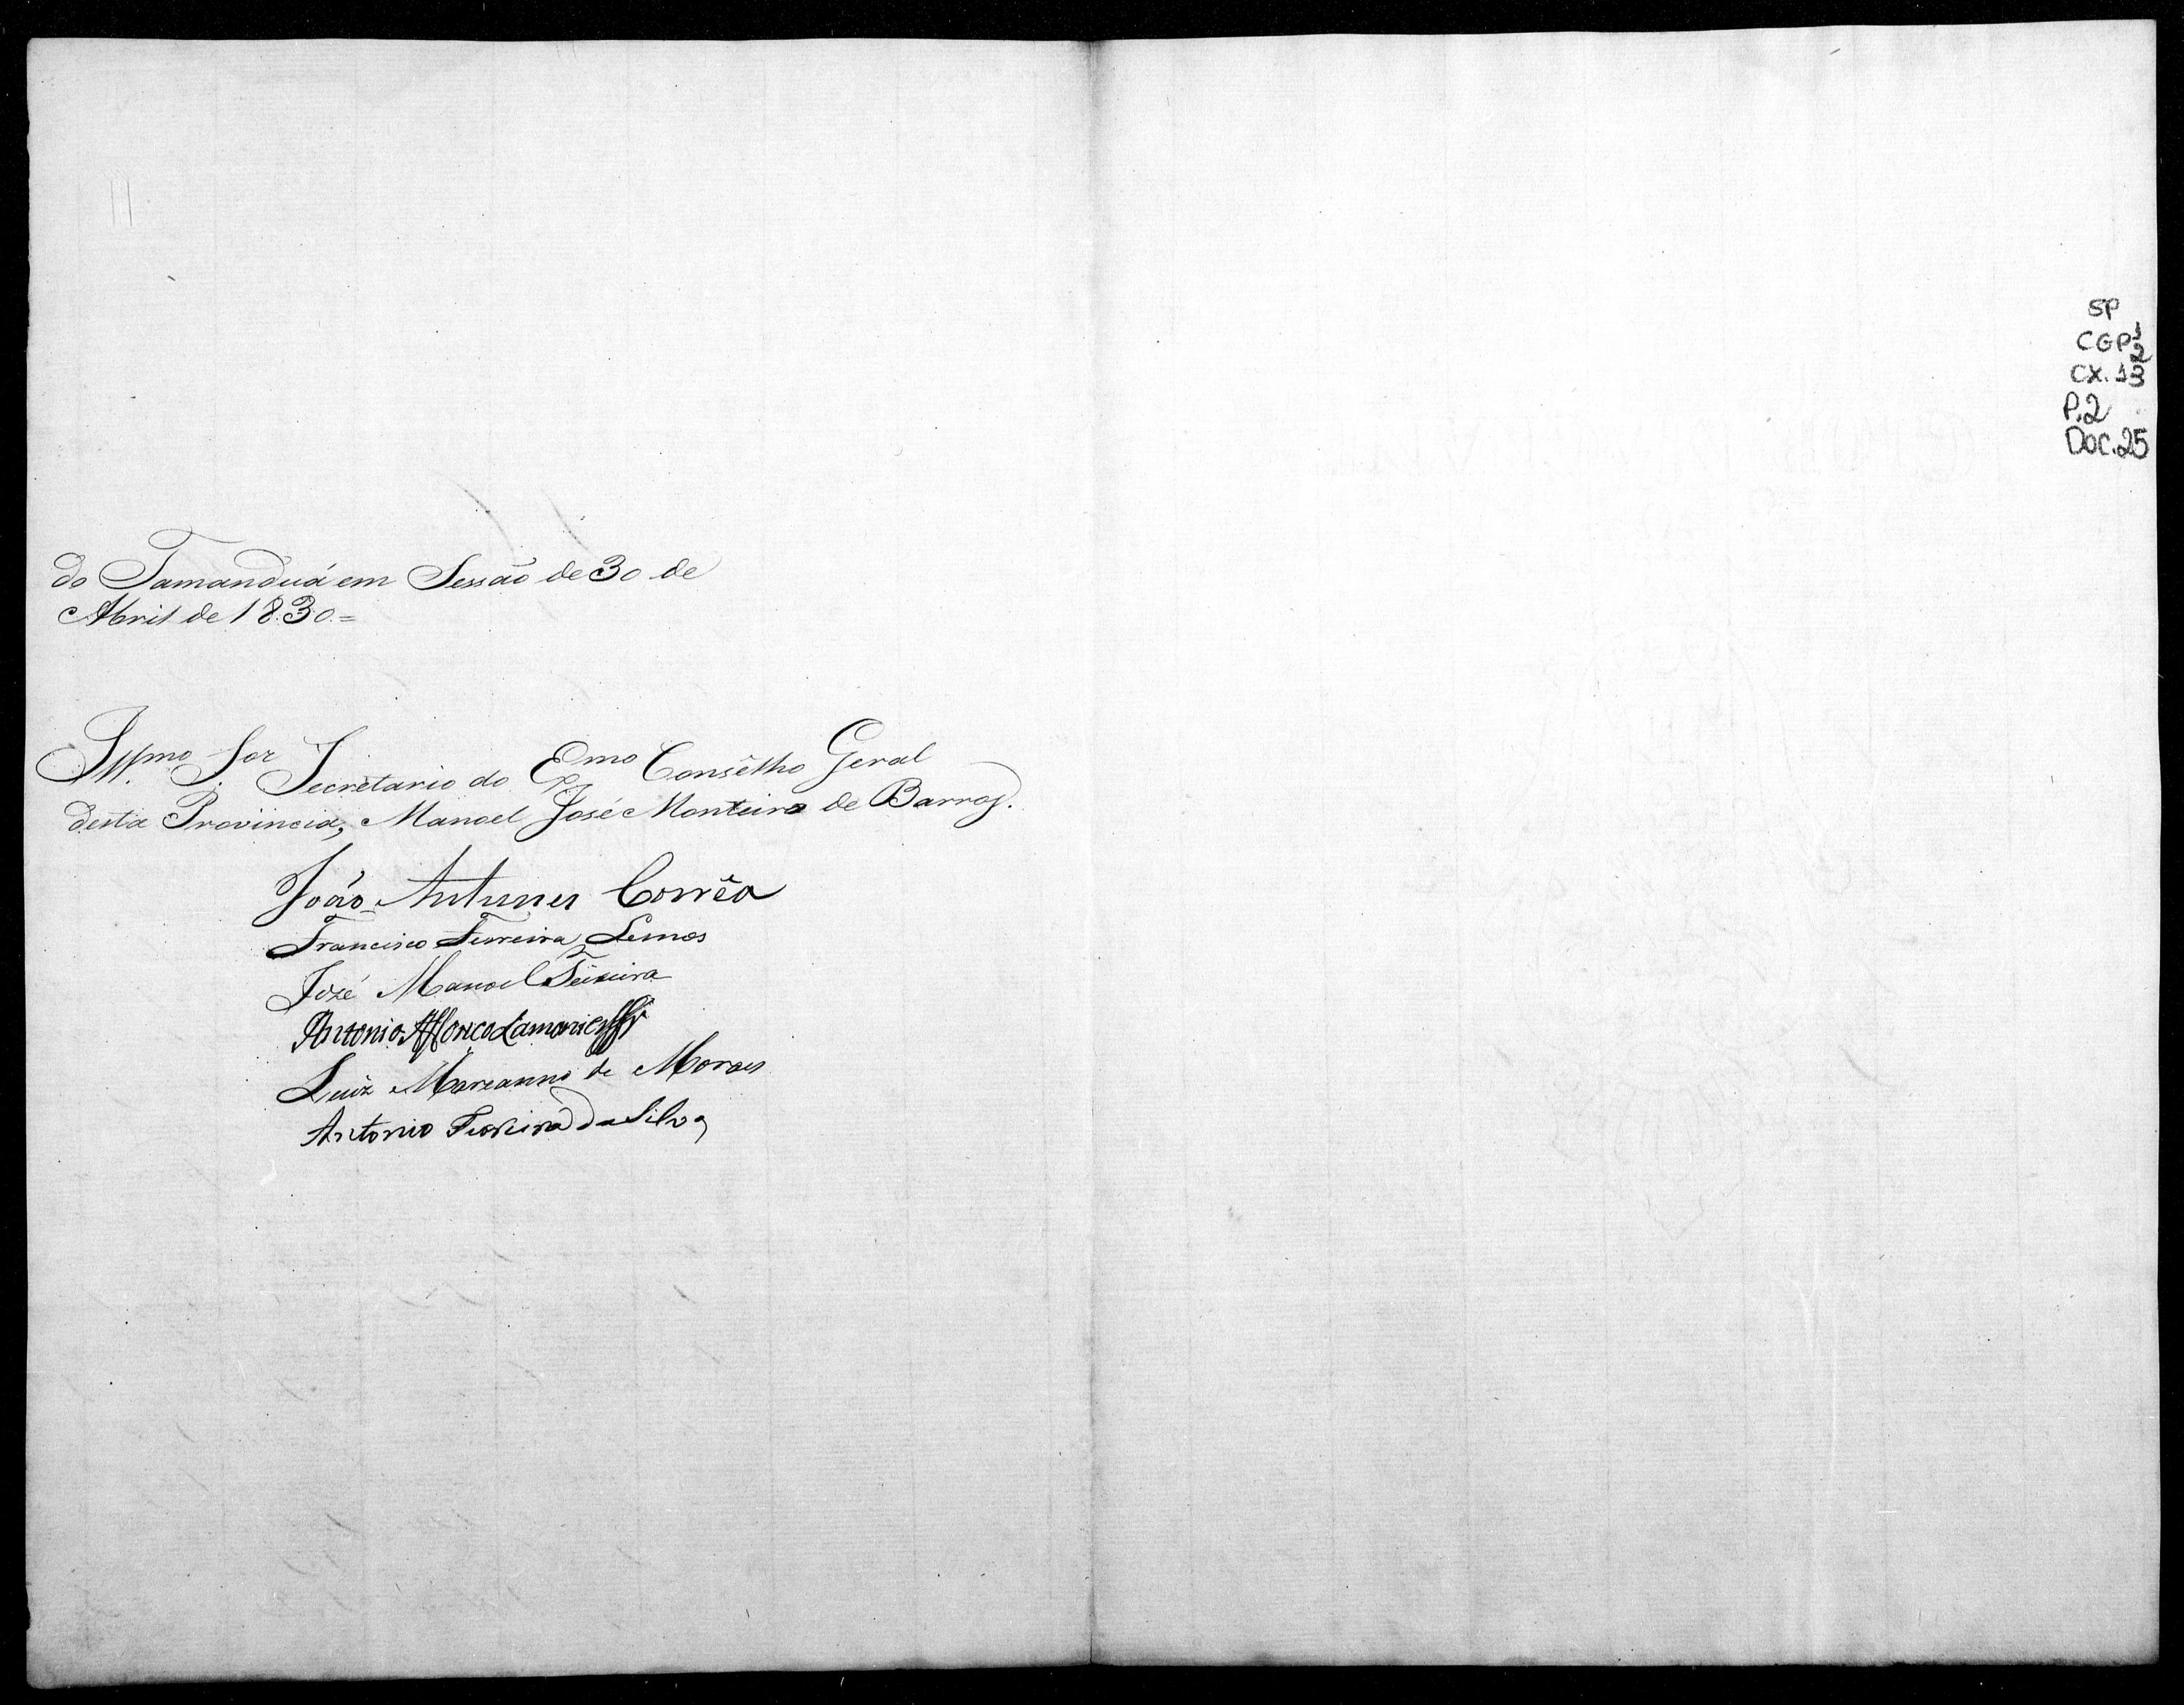 do Tamanduá em Sessão de 30 de
Abril de 1830.=
Illmo Sor Secretario do Exmo Consêlho Geral
desta Provincia, Manoel José Monteiro de Barros.
João Antunes Corrêa
Francisco Ferreira Lemos
José Manoel Teixeira
Antonio Affonco Lamonier
Luiz Marianno de Moraes
Antonio Teixeira da Silva
SP
CGP 1/2
CX. 13
P.2
Doc.25